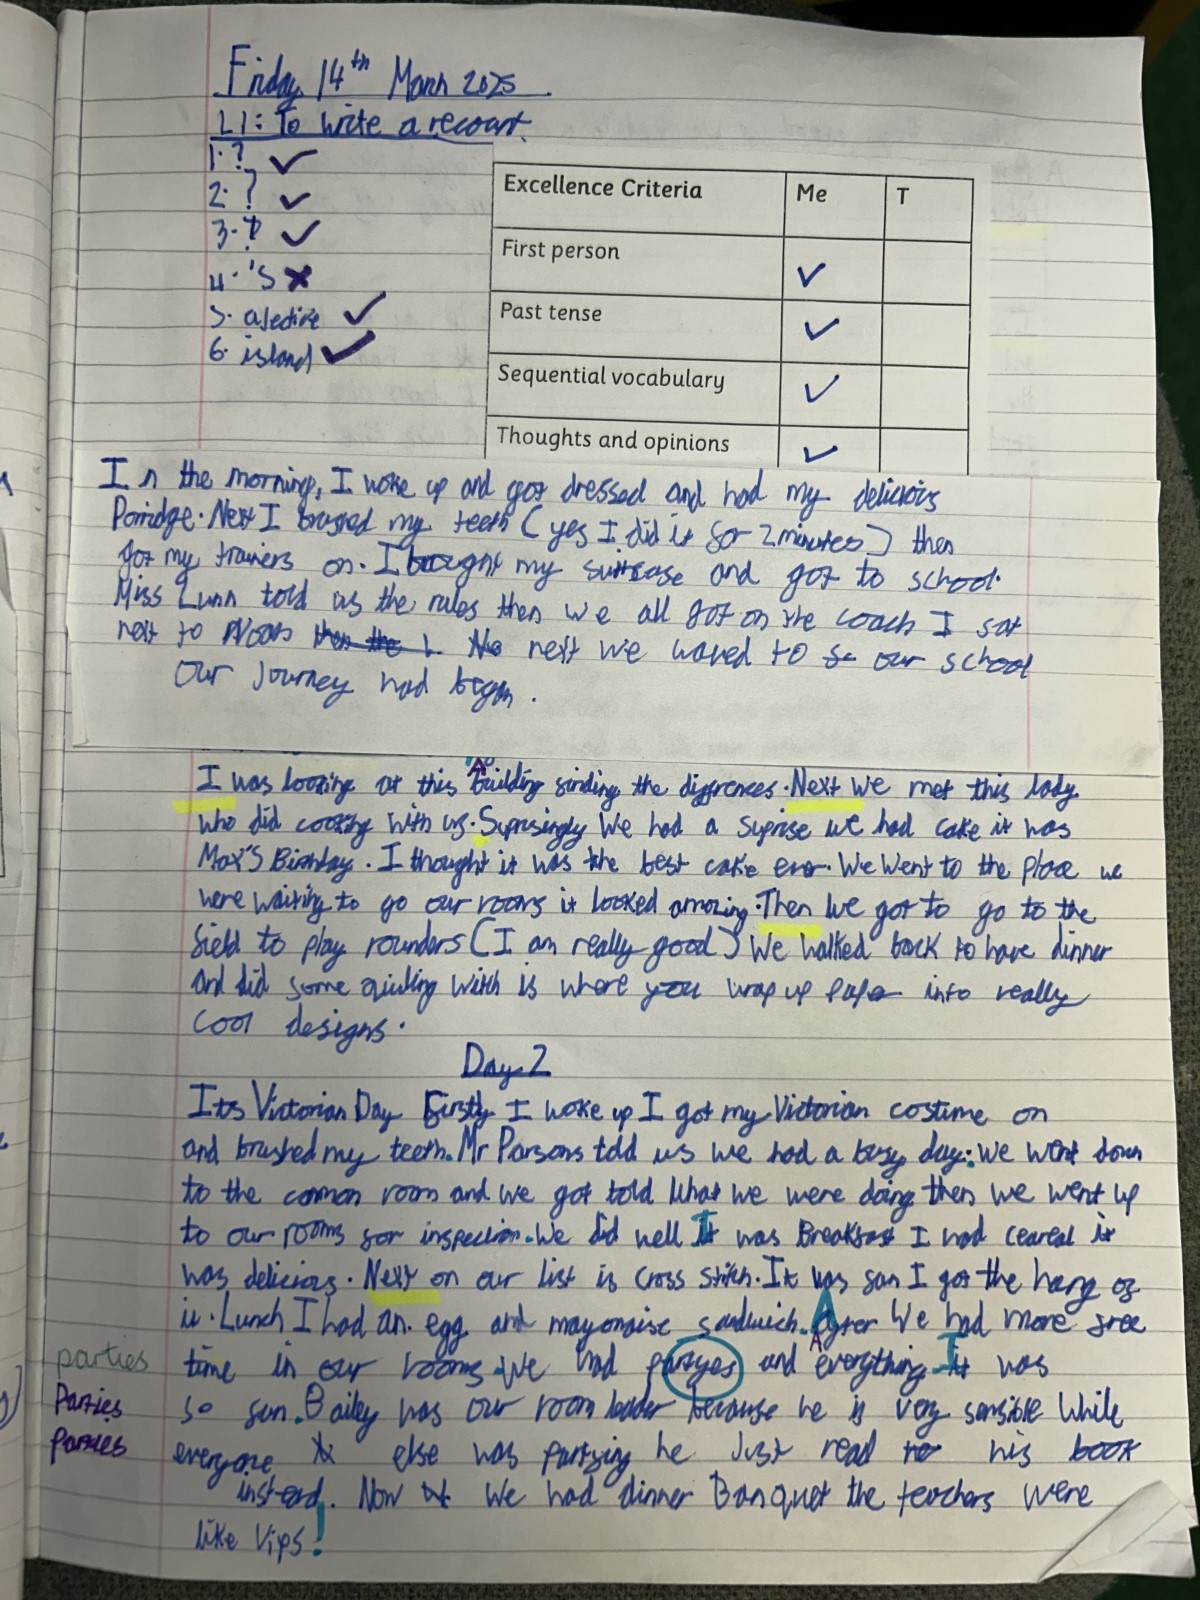 Friday 14th March 2025
LI: To write a recount.
1. ? ✓
2. ? ✓
3. ? ✓
4. 's ✗
5. ajective ✓
6. island ✓
Excellence Criteria Me T
First person ✓
Past tense ✓
Sequential vocabulary ✓
Thoughts and opinions ✓
In the morning, I woke up and got dressed and had my delicious
Porridge. Next I brushed my teeth (yes I did it for 2 minutes) then
got my trainers on. I brought my suitcase and got to school.
Miss Lunn told us the rules then we all got on the coach I sat
next to next we waved to our school
Our Journey had began.
I was looking at this building finding the diffrences. Next we met this lady
who did cooking with us. Suprisingly We had a suprise we had cake it was
Max's Birthday. I thought it was the best cake ever. We Went to the place we
were waiting to go our rooms it looked amazing. Then we got to go to the
field to play rounders (I am really good) We walked back to have dinner
and did some quilling witch is where you wrap up paper into really
cool designs.
Day 2
Its Victorian Day Firstly I woke up I got my Victorian costume on
and brushed my teeth. Mr Parsons told us we had a busy day. We went down
to the common room and we got told what we were doing then we went up
to our rooms for inspection. We did well It was Breakfast I had ceareal it
was delicious. Next on our list is cross stitch. It was fun I got the hang of
it. Lunch I had an egg and mayonaise sandwich. After We had more free
parties time in our rooms. We had partyes and everything It was
Parties so fun. Bailey was our room leader because he is very sensible While
parties everyone else was partying he Just read his book
instead. Now we had dinner Banquet the teachers were
like Vips!